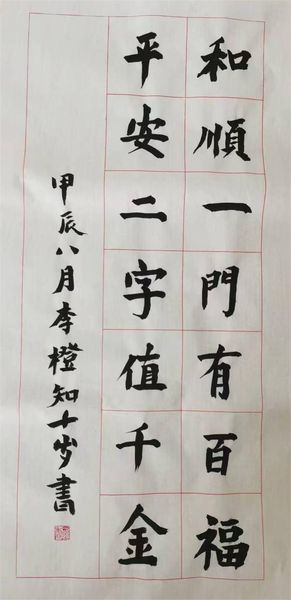 和順一門有百福
平安二字值千金
甲辰八月李橙知十岁書